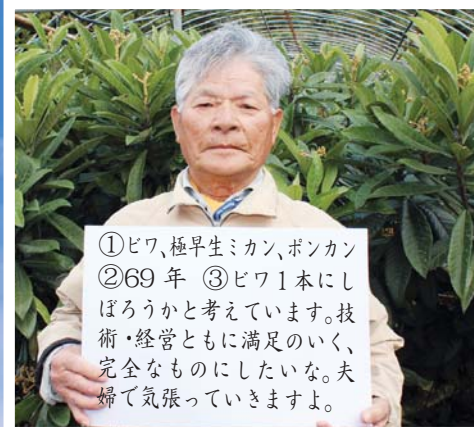 ①ビワ、極早生ミカン、ポンカン
②69年 ③ビワ1本にし
ぼろうかと考えています。技
術・経営ともに満足のいく、
完全なものにしたいな。夫
婦で気張っていきますよ。